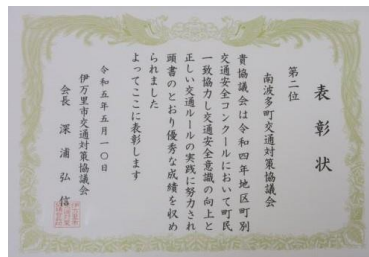 表彰状
第二位
南波多町交通対策協議会
貴協議会は令和四年地区町別
交通安全コンクールにおいて町民
一致協力し交通安全意識の向上と
正しい交通ルールの実践に努力され
頭書のとおり優秀な成績を収め
られました
よってここに表彰します
令和五年五月一〇日
伊万里市交通対策協議会
会長 深浦弘信